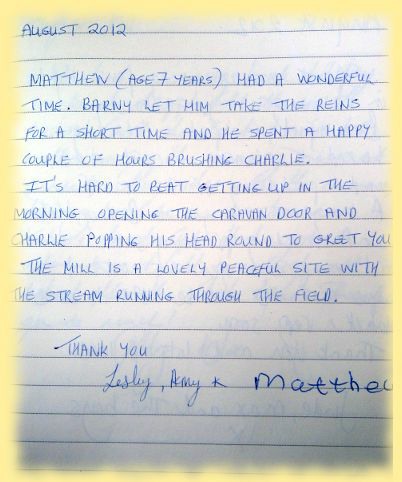 AUGUST 2012
MATTHEW (AGE 7 YEARS) HAD A WONDERFUL
TIME. BARNY LET HIM TAKE THE REINS
FOR A SHORT TIME AND HE SPENT A HAPPY
COUPLE OF HOURS BRUSHING CHARLIE.
IT'S HARD TO BEAT GETTING UP IN THE
MORNING OPENING THE CARAVAN DOOR AND
CHARLIE POPPING HIS HEAD ROUND TO GREET YOU
THE MILL IS A LOVELY PEACEFUL SITE WITH
THE STREAM RUNNING THROUGH THE FIELD.
THANK YOU
Lesley, Amy & Matthew